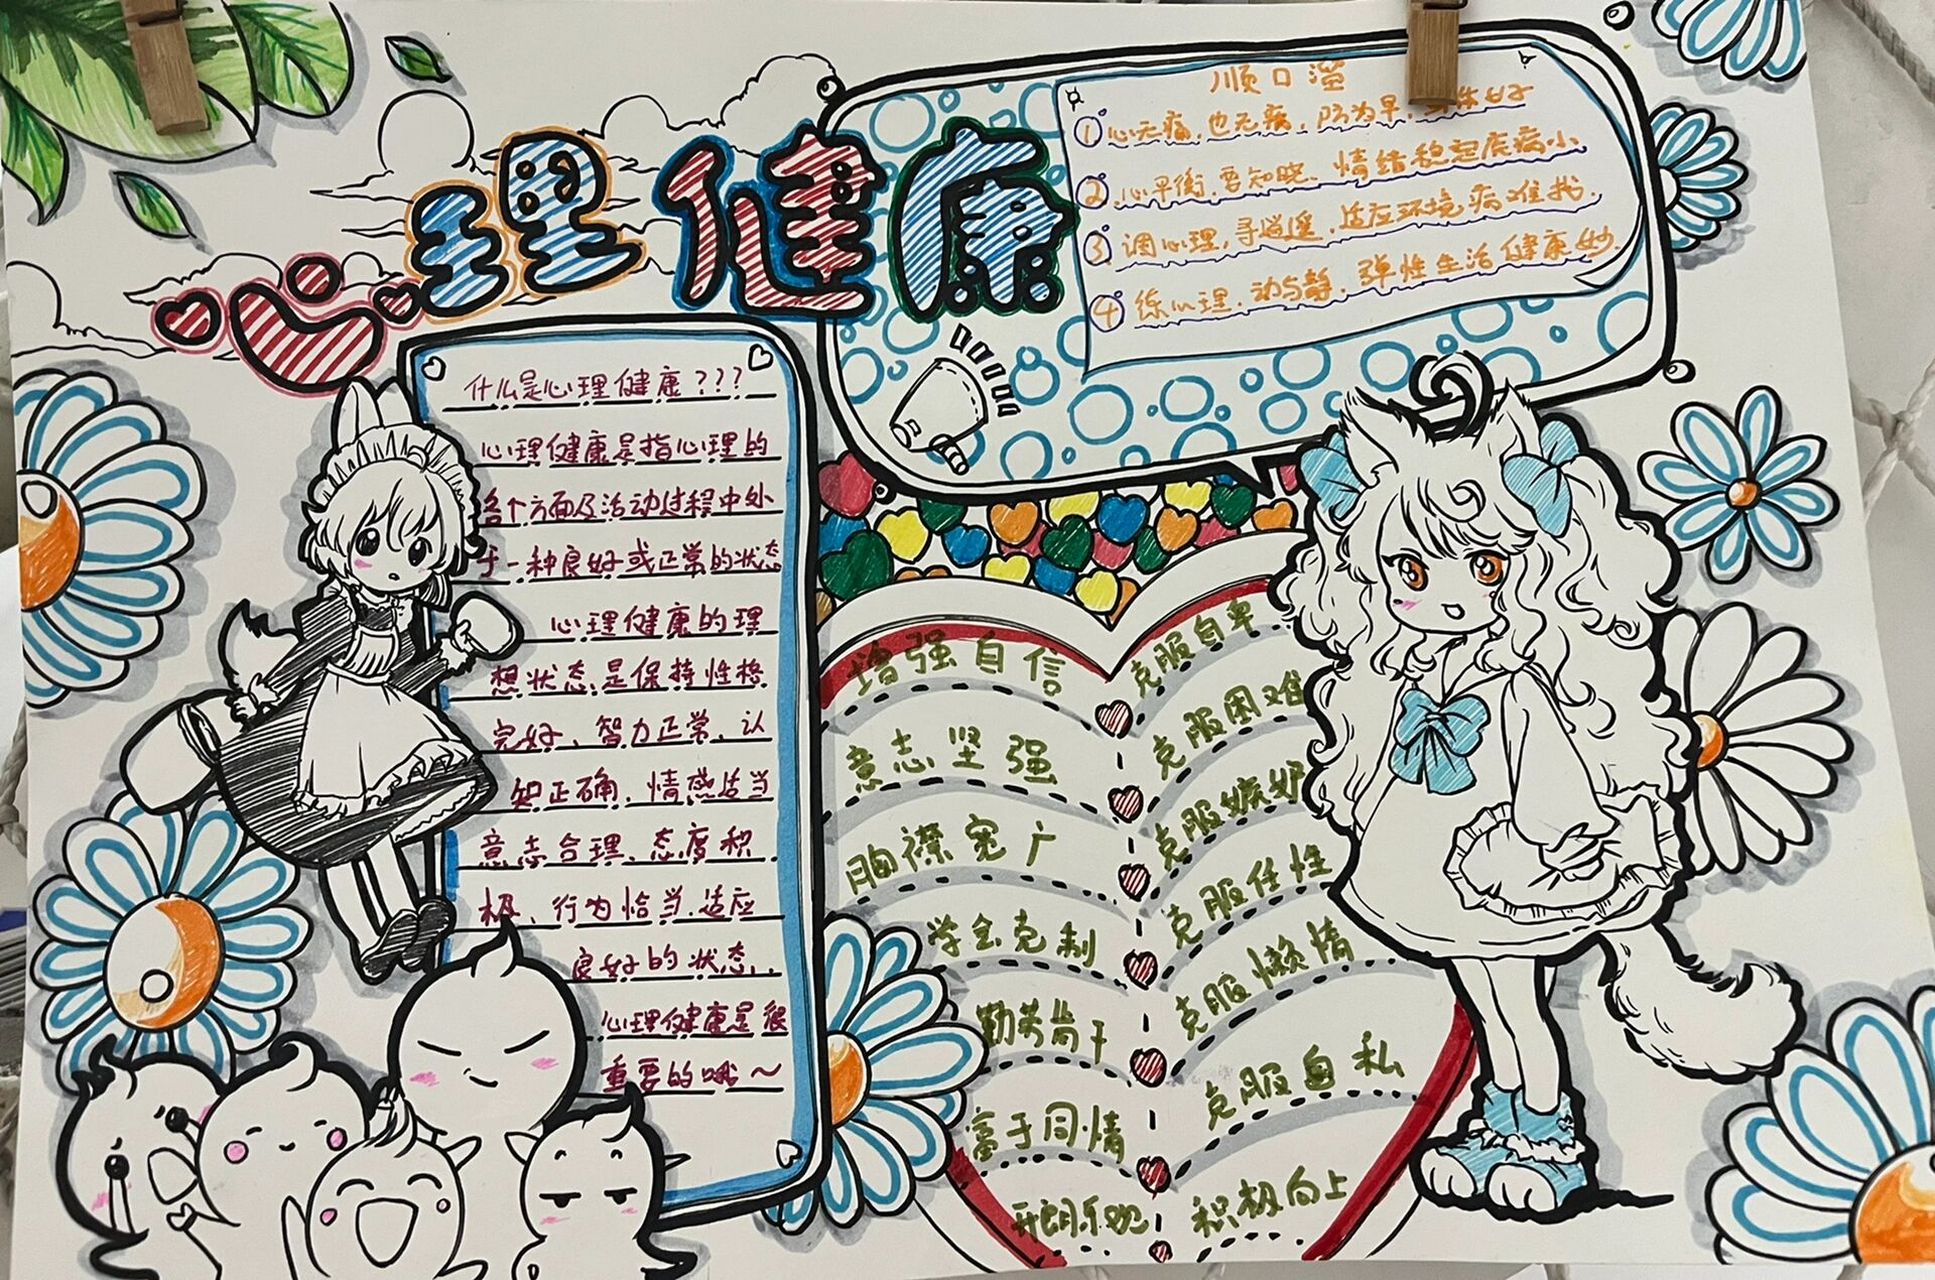 心理健康
顺口溜
①心无病,也无病,防为早,身体好
②心平衡,要知晓、情绪稳定疾病小
③调心理,寻逍遥,适应环境病难扰
④练心理,动与静,弹性生活健康妙
什么是心理健康???
心理健康是指心理的
各个方面及活动过程中处
于一种良好或正常的状态
心理健康的理
想状态是保持性格
完好、智力正常、认
知正确、情感适当
意志合理、态度积
极、行为恰当、适应
良好的状态。
心理健康是很
重要的哦~
增强自信
意志坚强
胸襟宽广
学会克制
勤劳肯干
富于同情
开朗乐观
克服自卑
克服困难
克服嫉妒
克服任性
克服懒惰
克服自私
积极向上